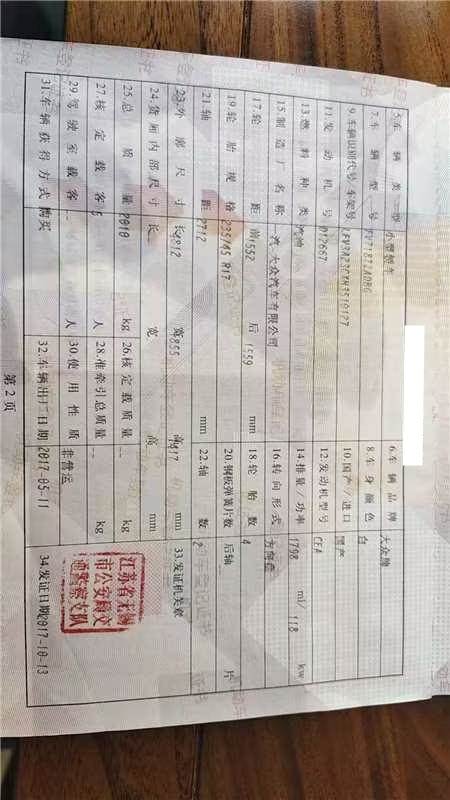 5.车辆类型 小型轿车 6.车辆品牌 大众牌
7.车辆型号 8.车身颜色 白
9.车辆识别代号/车架号 10.国产/进口 国产
11.发动机号 12.发动机型号 CEA
13.燃料种类 汽油 14.排量/功率 1798 ml/ 118 kw
15.制造厂名称 一汽-大众汽车有限公司 16.转向形式 方向盘
17.轮距 前1552 后1559 mm 18.轮胎数 4
19.轮胎规格 235/45 R17 20.钢板弹簧片数 后轴 片
21.轴距 2712 mm 22.轴数 2
23.外廓尺寸 长4812 宽1855 高1417 mm 33.发证机关章
24.货厢内部尺寸 长 宽 高 mm
25.总质量 2010 kg 26.核定载质量 -- kg
27.核定载客 5 人 28.准牵引总质量 -- kg
29.驾驶室载客 -- 人 30.使用性质 非营运
31.车辆获得方式 购买 32.车辆出厂日期 2017-05-11 34.发证日期2017-10-13
江苏省无锡
市公安局交
通警察支队
第2页